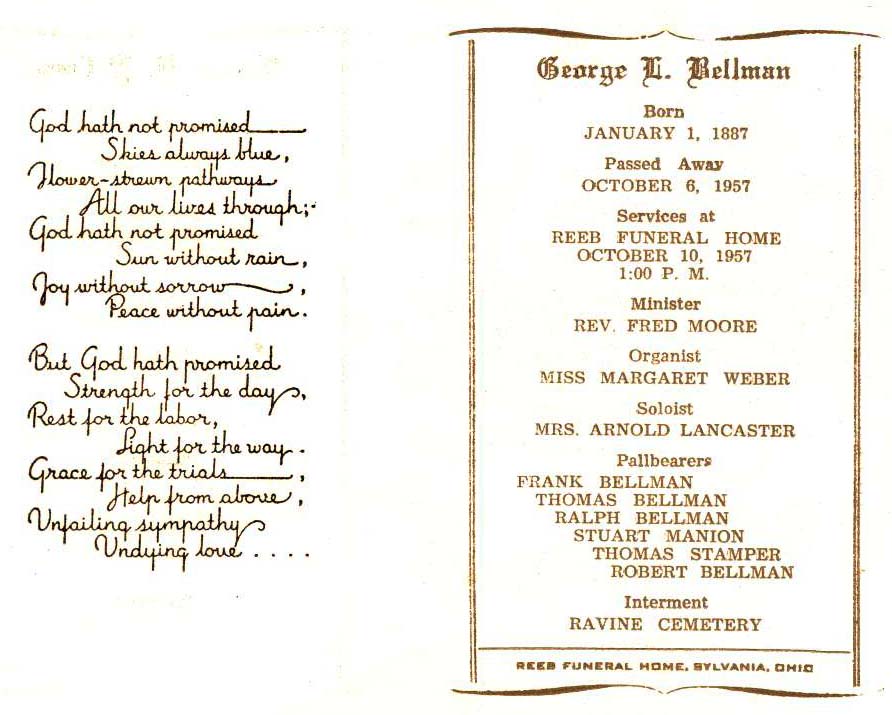 God hath not promised
Skies always blue,
Flower-strewn pathways
All our lives through;
God hath not promised
Sun without rain,
Joy without sorrow,
Peace without pain.
But God hath promised
Strength for the day,
Rest for the labor,
Light for the way.
Grace for the trials,
Help from above,
Unfailing sympathy
Undying love . . . .
George L. Bellman
Born
JANUARY 1, 1887
Passed Away
OCTOBER 6, 1957
Services at
REEB FUNERAL HOME
OCTOBER 10, 1957
1:00 P. M.
Minister
REV. FRED MOORE
Organist
MISS MARGARET WEBER
Soloist
MRS. ARNOLD LANCASTER
Pallbearers
FRANK BELLMAN
THOMAS BELLMAN
RALPH BELLMAN
STUART MANION
THOMAS STAMPER
ROBERT BELLMAN
Interment
RAVINE CEMETERY
REEB FUNERAL HOME, SYLVANIA, OHIO